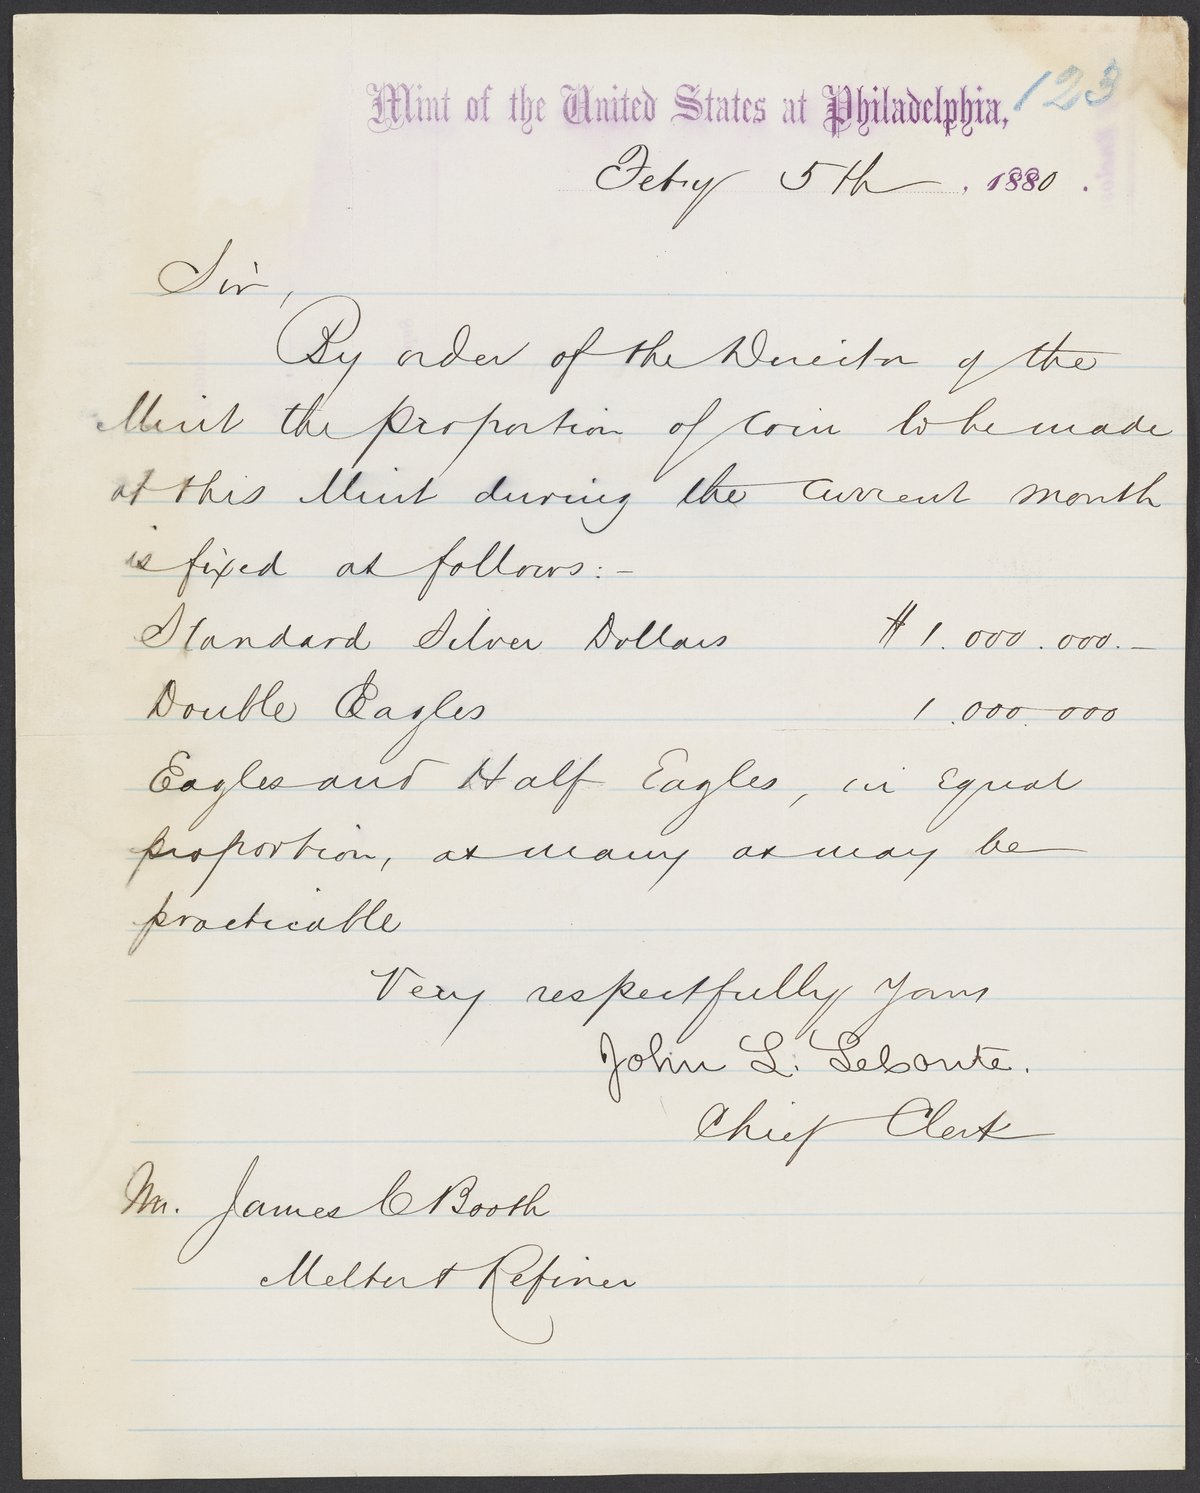 123
Mint of the United States at Philadelphia,
Feby 5th, 1880.
Sir,
By order of the Director of the
Mint the proportion of coin to be made
at this Mint during the current month
is fixed as follows:-
Standard Silver Dollars $1.000.000.-
Double Eagles 1.000.000
Eagles and Half Eagles, in equal
proportion, as many as may be
practicable
Very respectfully yours
John L. LeConte.
Chief Clerk
Mr. James C Booth
Melter & Refiner